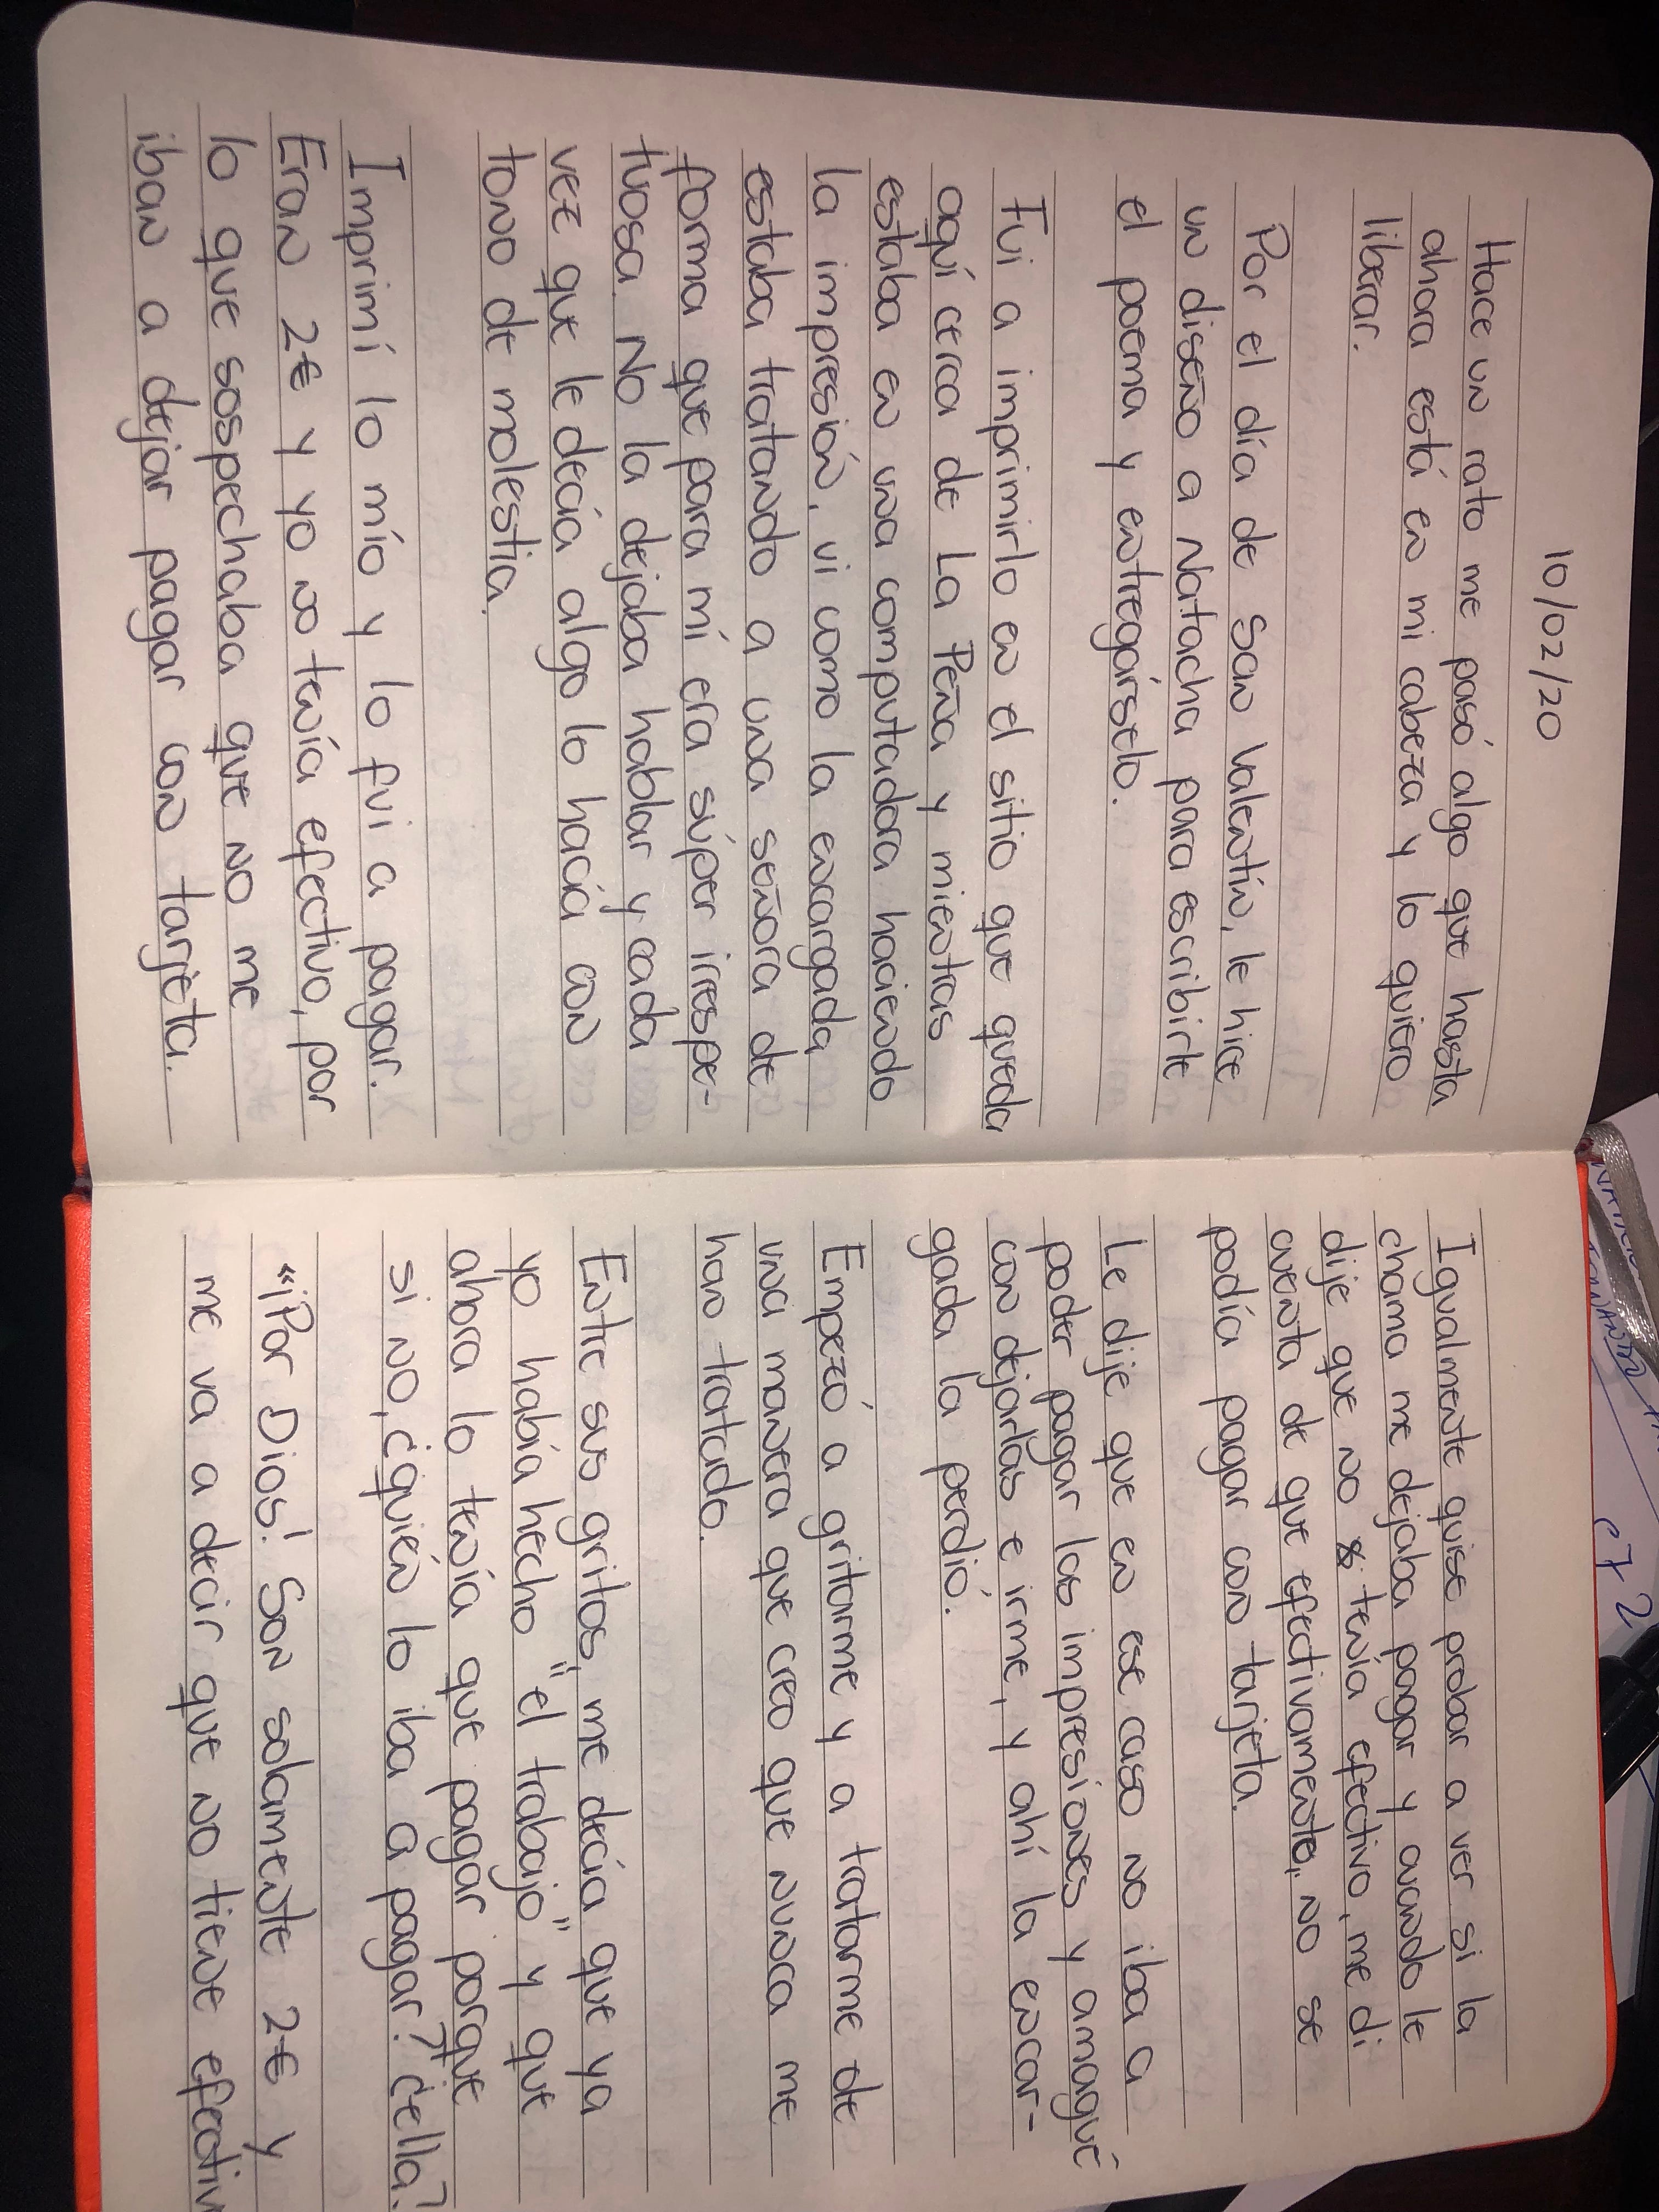 10/02/20
Hace un rato me pasó algo que hasta
ahora está en mi cabeza y lo quiero
liberar.
Por el día de San Valentín, le hice
un diseño a Natacha para escribirle
el poema y entregárselo.
Fui a imprimirlo en el sitio que queda
aquí cerca de La Peña y mientras
estaba en una computadora haciendo
la impresión, vi como la encargada
estaba tratando a una señora de
forma que para mí era súper irrespe-
tuosa. No la dejaba hablar y cada
vez que le decía algo lo hacía con
tono de molestia.
Imprimí lo mío y lo fui a pagar.
Eran 2€ y yo no tenía efectivo, por
lo que sospechaba que no me
iban a dejar pagar con tarjeta.
Igualmente quise probar a ver si la
chama me dejaba pagar y cuando le
dije que no tenía efectivo, me di
cuenta de que efectivamente, no se
podía pagar con tarjeta.
Le dije que en ese caso no iba a
poder pagar las impresiones y amagué
con dejarlas e irme, y ahí la encar-
gada la perdió.
Empezó a gritarme y a tratarme de
una manera que creo que nunca me
han tratado.
Entre sus gritos, me decía que ya
yo había hecho "el trabajo" y que
ahora lo tenía que pagar porque
si no, ¿quién lo iba a pagar? ¿ella?
«¡Por Dios! Son solamente 2€ y
me va a decir que no tiene efectiv